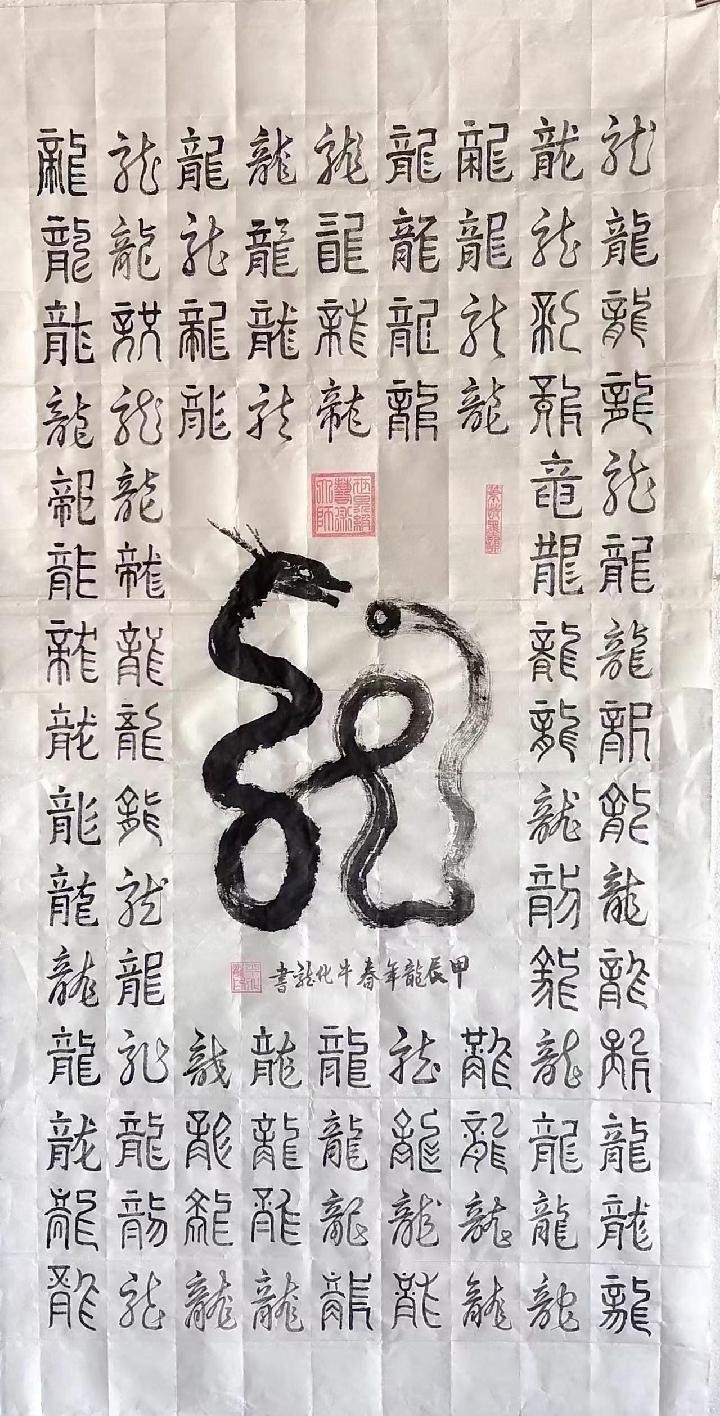 龍龍龍龍龍龍龍龍龍
龍龍龍龍龍龍龍龍龍
龍龍龍龍龍龍龍龍龍
龍龍龍龍龍龍龍龍龍
龍龍龍龍
世界級藝術大師
龍龍龍龍
龍龍龍龍
龍龍龍龍
龍龍龍龍
龍龍龍龍
龍龍龍龍
甲辰龍年春牛化龍書
龍龍龍龍龍龍龍龍龍
龍龍龍龍龍龍龍龍龍
龍龍龍龍龍龍龍龍龍
龍龍龍龍龍龍龍龍龍